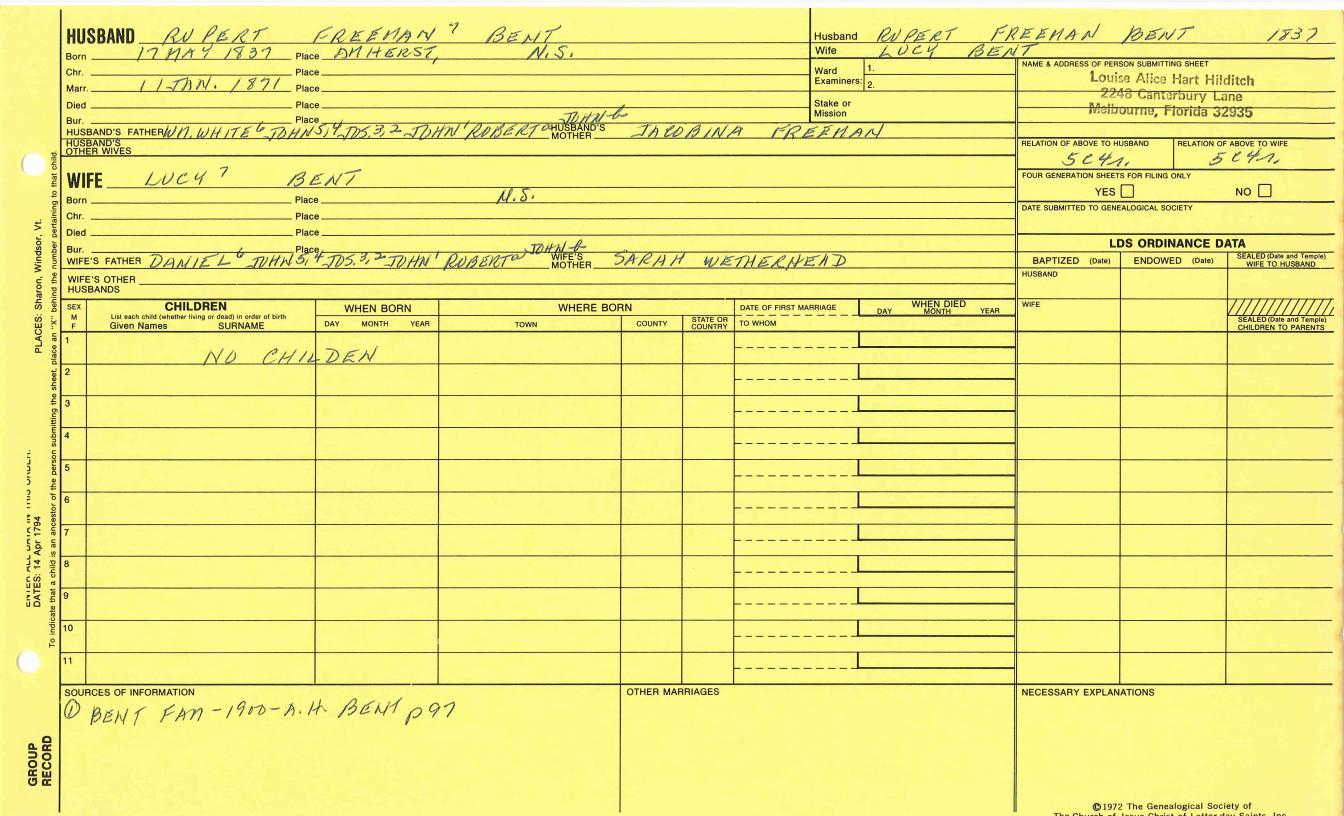 HUSBAND RUPERT FREEMAN 7 BENT
Born 17 MAY 1837 Place AMHERST, N.S.
Chr. Place
Marr. 11 JAN. 1871 Place
Died Place
Bur. Place
HUSBAND'S FATHER WM. WHITE 6 JOHN 5,4 JOS. 3,2 JOHN 1 ROBERT a JOHN b HUSBAND'S MOTHER JACOBINA FREEMAN
HUSBAND'S OTHER WIVES
WIFE LUCY 7 BENT
Born Place N.S.
Chr. Place
Died Place
Bur. Place
WIFE'S FATHER DANIEL 6 JOHN 5,4 JOS. 3,2 JOHN 1 ROBERT a JOHN b WIFE'S MOTHER SARAH WETHERHEAD
WIFE'S OTHER HUSBANDS
Husband RUPERT FREEMAN BENT 1837
Wife LUCY BENT
Ward Examiners: 1.
2.
Stake or Mission
NAME & ADDRESS OF PERSON SUBMITTING SHEET
Louise Alice Hart Hilditch
2248 Canterbury Lane
Melbourne, Florida 32935
RELATION OF ABOVE TO HUSBAND RELATION OF ABOVE TO WIFE
5C4r. 5C4r.
FOUR GENERATION SHEETS FOR FILING ONLY
YES NO
DATE SUBMITTED TO GENEALOGICAL SOCIETY
LDS ORDINANCE DATA
BAPTIZED (Date) ENDOWED (Date) SEALED (Date and Temple) WIFE TO HUSBAND
HUSBAND
WIFE
SEALED (Date and Temple) CHILDREN TO PARENTS
SEX M F
CHILDREN
List each child (whether living or dead) in order of birth
Given Names SURNAME
WHEN BORN
DAY MONTH YEAR
WHERE BORN
TOWN COUNTY STATE OR COUNTRY
DATE OF FIRST MARRIAGE
TO WHOM
WHEN DIED
DAY MONTH YEAR
1 NO CHILDEN
2
3
4
5
6
7
8
9
10
11
SOURCES OF INFORMATION
① BENT FAM - 1900 - A.H. BENT p97
OTHER MARRIAGES
NECESSARY EXPLANATIONS
©1972 The Genealogical Society of
The Church of Jesus Christ of Latter-day Saints, Inc.
PLACES: Sharon, Windsor, Vt.
ENTER ALL DATA IN THIS ORDER:
DATES: 14 Apr 1794
To indicate that a child is an ancestor of the person submitting the sheet, place an "X" behind the number pertaining to that child.
GROUP RECORD